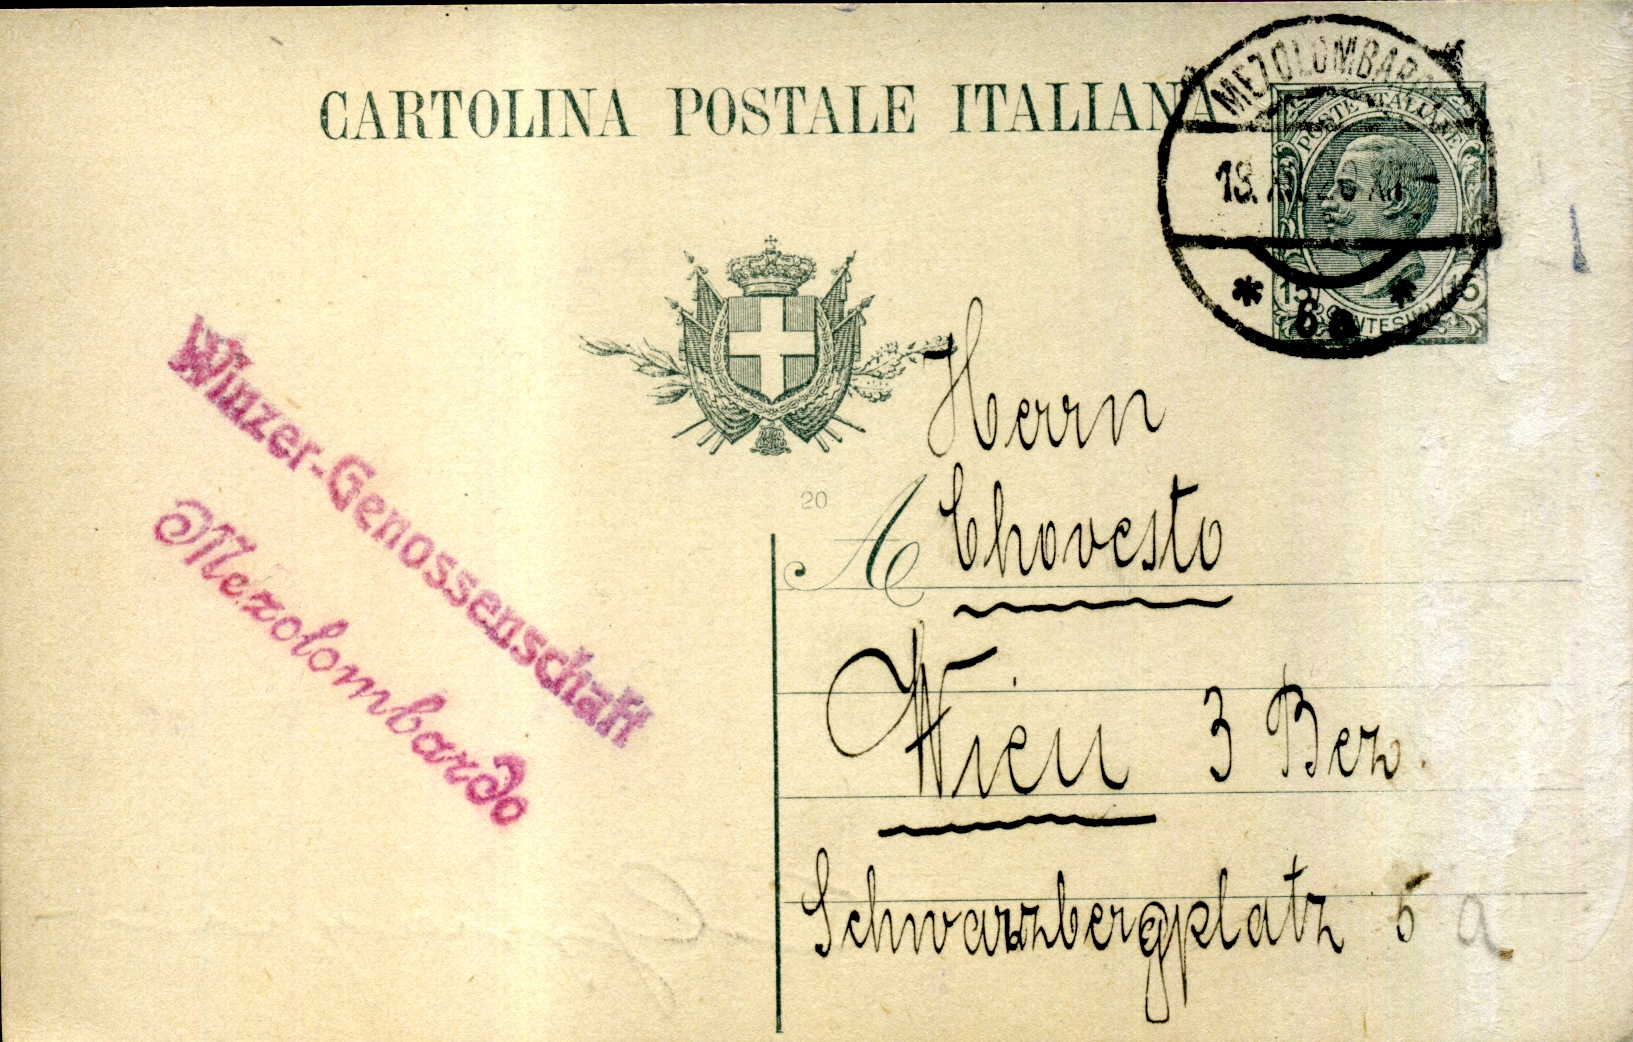 CARTOLINA POSTALE ITALIANA
MEZOLOMBARDO
POSTE ITALIANE
15 CENTESIMI 15
6a
Herrn
20
A Chovesto
Wien 3 Bez.
Schwarzbergplatz 5 a
Winzer-Genossenschaft
Mezolombardo